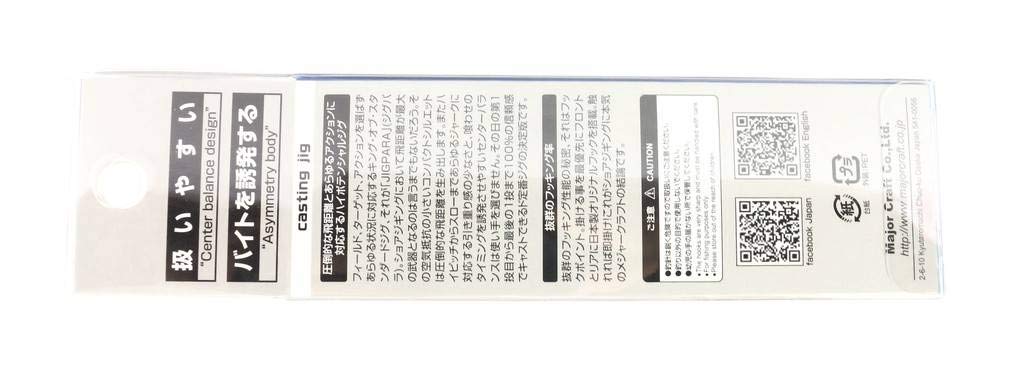 扱いやすい
"Center balance design"
バイトを誘発する
"Asymmetry body"
casting jig
圧倒的な飛距離とあらゆるアクションに
対応するハイポテンシャルジグ
フィールド、ターゲット、アクションを選ばず
あらゆる状況に対応するキング・オブ・スタ
ンダードジグ、それが「JIGPARA」(ジグパ
ラ)。ショアジギングにおいて飛距離が最大
の武器となるのは言うまでもないだろう。そ
の空気抵抗の小さいコンパクトシルエット
は圧倒的な飛距離を生み出します。またハ
イピッチからスローまであらゆるジャークに
対応する引き重り感の少なさと、喰わせの
タイミングを誘発させやすいセンターバラ
ンスは使い手を選びません。その日の第1
投目から最後の1投まで100%の信頼感
でキャストできるド定番ジグの決定版です。
抜群のフッキング率
抜群のフッキング性能の秘密、それはフッ
クポイント、掛ける事を最優先にフロント
とリアに日本製オリジナルフックを搭載。触
れれば即掛け!これがショアジギング!に本気
のメジャークラフトの結論です。
ご注意 CAUTION
●釣針は鋭く危険ですので取扱いにご注意ください。
●釣り以外の目的で使用しないでください。
●幼児の手の届かない所で保管してください。
●The hooks are very sharp and must be handled with care.
●For fishing purposes only.
●Please store out of the reach of children.
facebook Japan
facebook English
紙
台紙
プラ
外装:PET
Major Craft Co.,Ltd.
http://www.majorcraft.co.jp
2-6-10 Kyutaromachi Chuo-ku Osaka Japan 541-0056